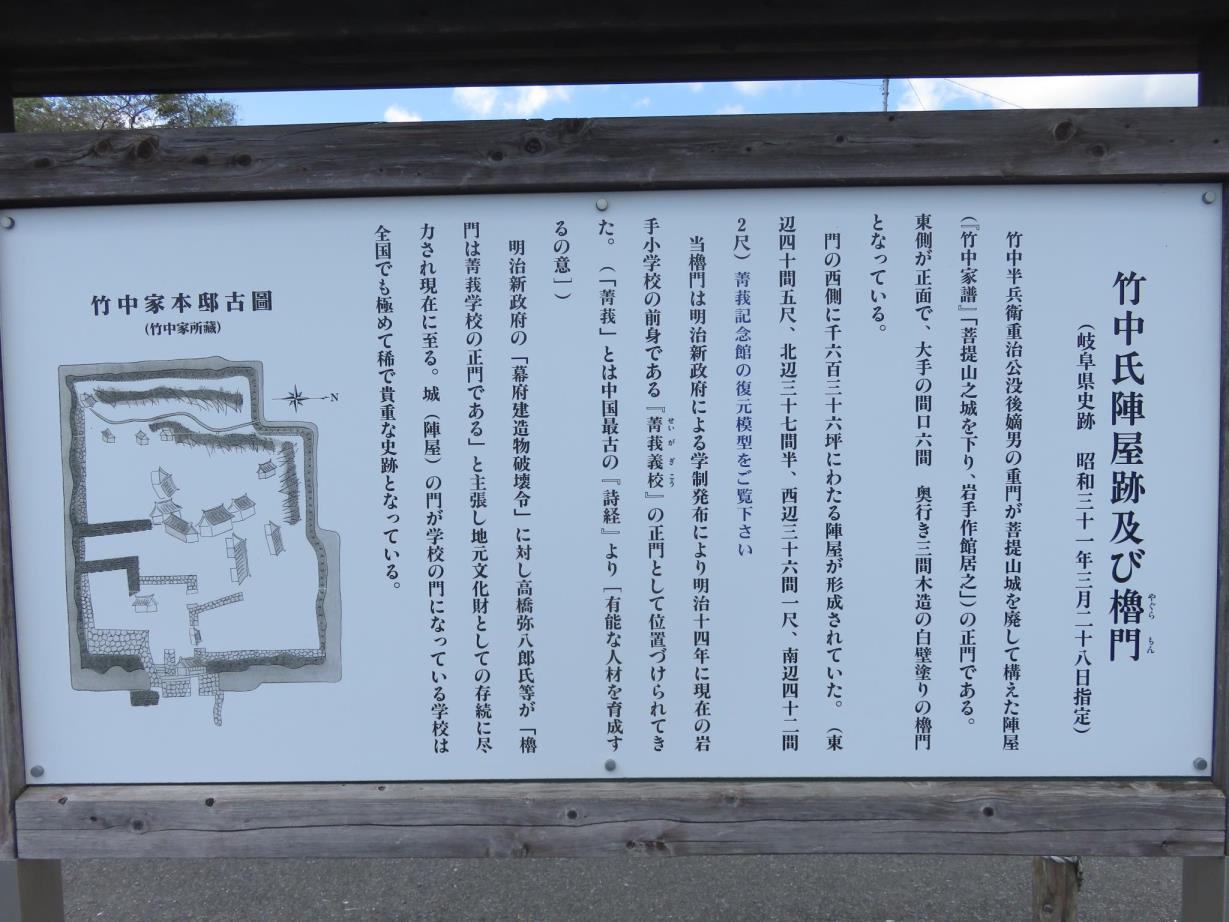 竹中氏陣屋跡及び櫓門
やぐら もん
(岐阜県史跡 昭和三十一年三月二十八日指定)
竹中半兵衛重治公没後嫡男の重門が菩提山城を廃して構えた陣屋
(『竹中家譜』「菩提山之城を下り、岩手作館居之」)の正門である。
東側が正面で、大手の間口六間 奥行き三間木造の白壁塗りの櫓門
となっている。
門の西側に千六百三十六坪にわたる陣屋が形成されていた。(東
辺四十間五尺、北辺三十七間半、西辺三十六間一尺、南辺四十二間
2尺)菁莪記念館の復元模型をご覧下さい
当櫓門は明治新政府による学制発布により明治十四年に現在の岩
手小学校の前身である『菁莪義校』の正門として位置づけられてき
せい が ぎ こう
た。(「菁莪」とは中国最古の『詩経』より[有能な人材を育成す
るの意])
明治新政府の「幕府建造物破壊令」に対し高橋弥八郎氏等が「櫓
門は菁莪学校の正門である」と主張し地元文化財としての存続に尽
力され現在に至る。城(陣屋)の門が学校の門になっている学校は
全国でも極めて稀で貴重な史跡となっている。
竹中家本邸古圖
(竹中家所蔵)
N